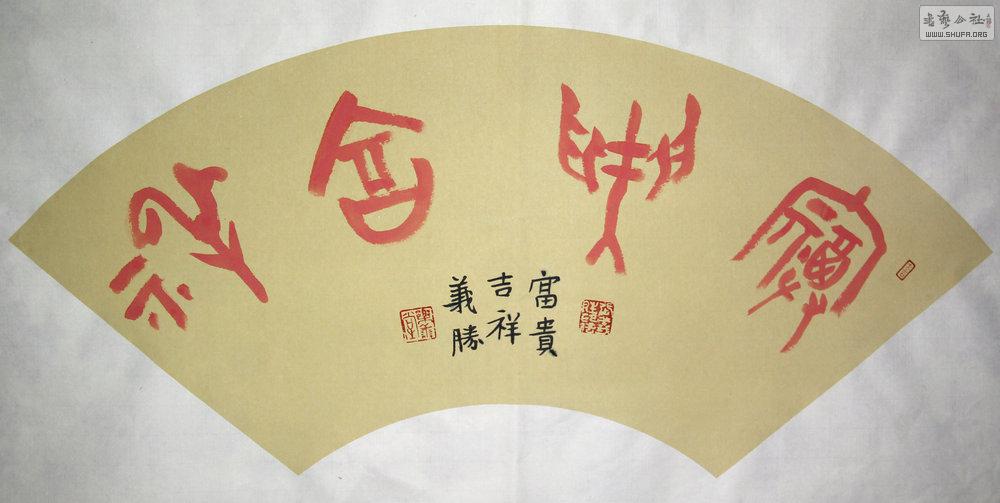 富貴吉祥
富貴
吉祥
義勝
書藝公社
WWW.SHUFA.ORG